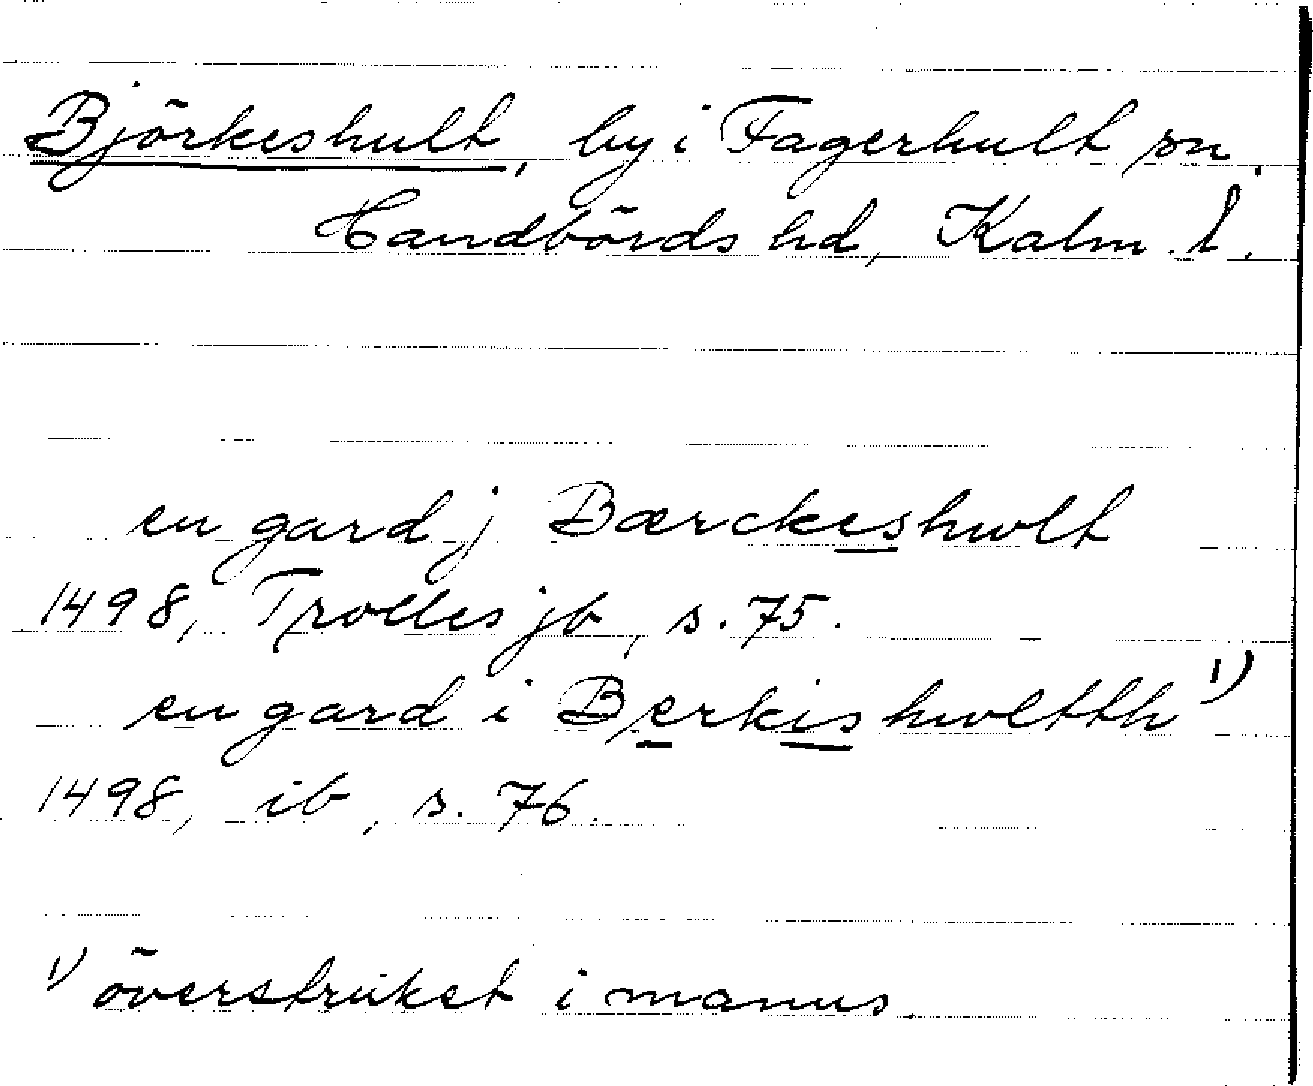 Björkeshult, by i Fagerhult sn.
Handbörds hd, Kalm. l.
en gard j Bærckeshwlt
1498, Trolles jb, s. 75.
en gard i Berkishwltth 1)
1498, ib, s. 76.
1) överstruket i manus.